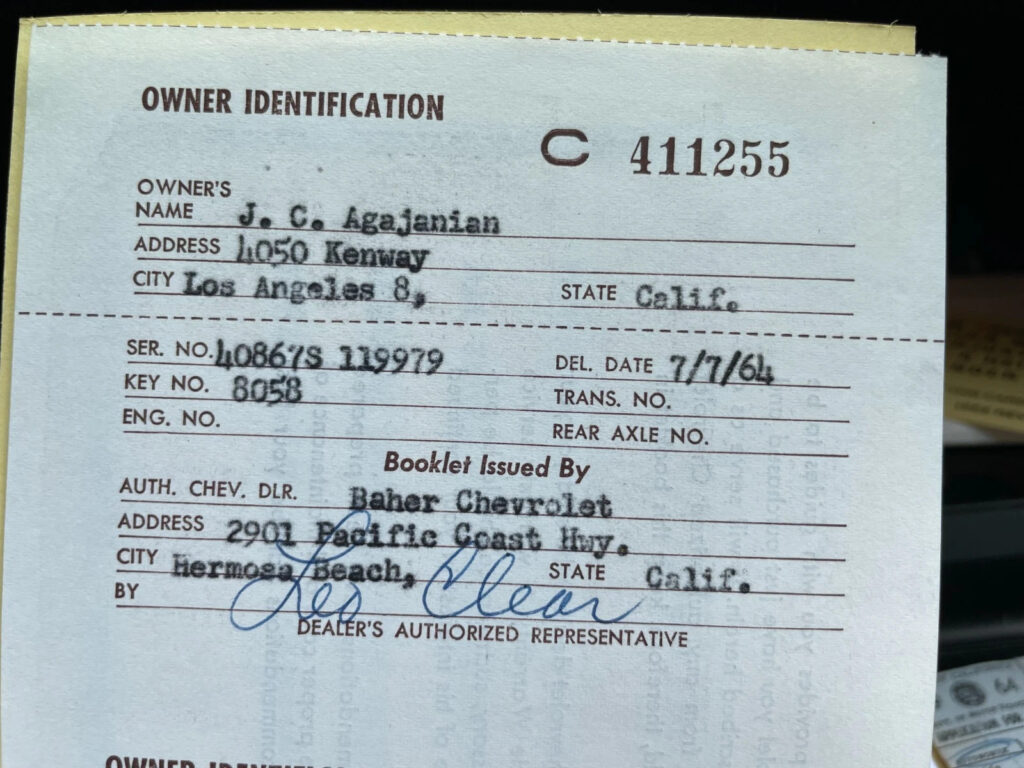 OWNER IDENTIFICATION
C 411255
OWNER'S
NAME J. C. Agajanian
ADDRESS 4050 Kenway
CITY Los Angeles 8, STATE Calif.
SER. NO. 40867S 119979 DEL. DATE 7/7/64
KEY NO. 8058 TRANS. NO.
ENG. NO. REAR AXLE NO.
Booklet Issued By
AUTH. CHEV. DLR. Baher Chevrolet
ADDRESS 2901 Pacific Coast Hwy.
CITY Hermosa Beach, STATE Calif.
BY Leo Clear
DEALER'S AUTHORIZED REPRESENTATIVE
OWNER